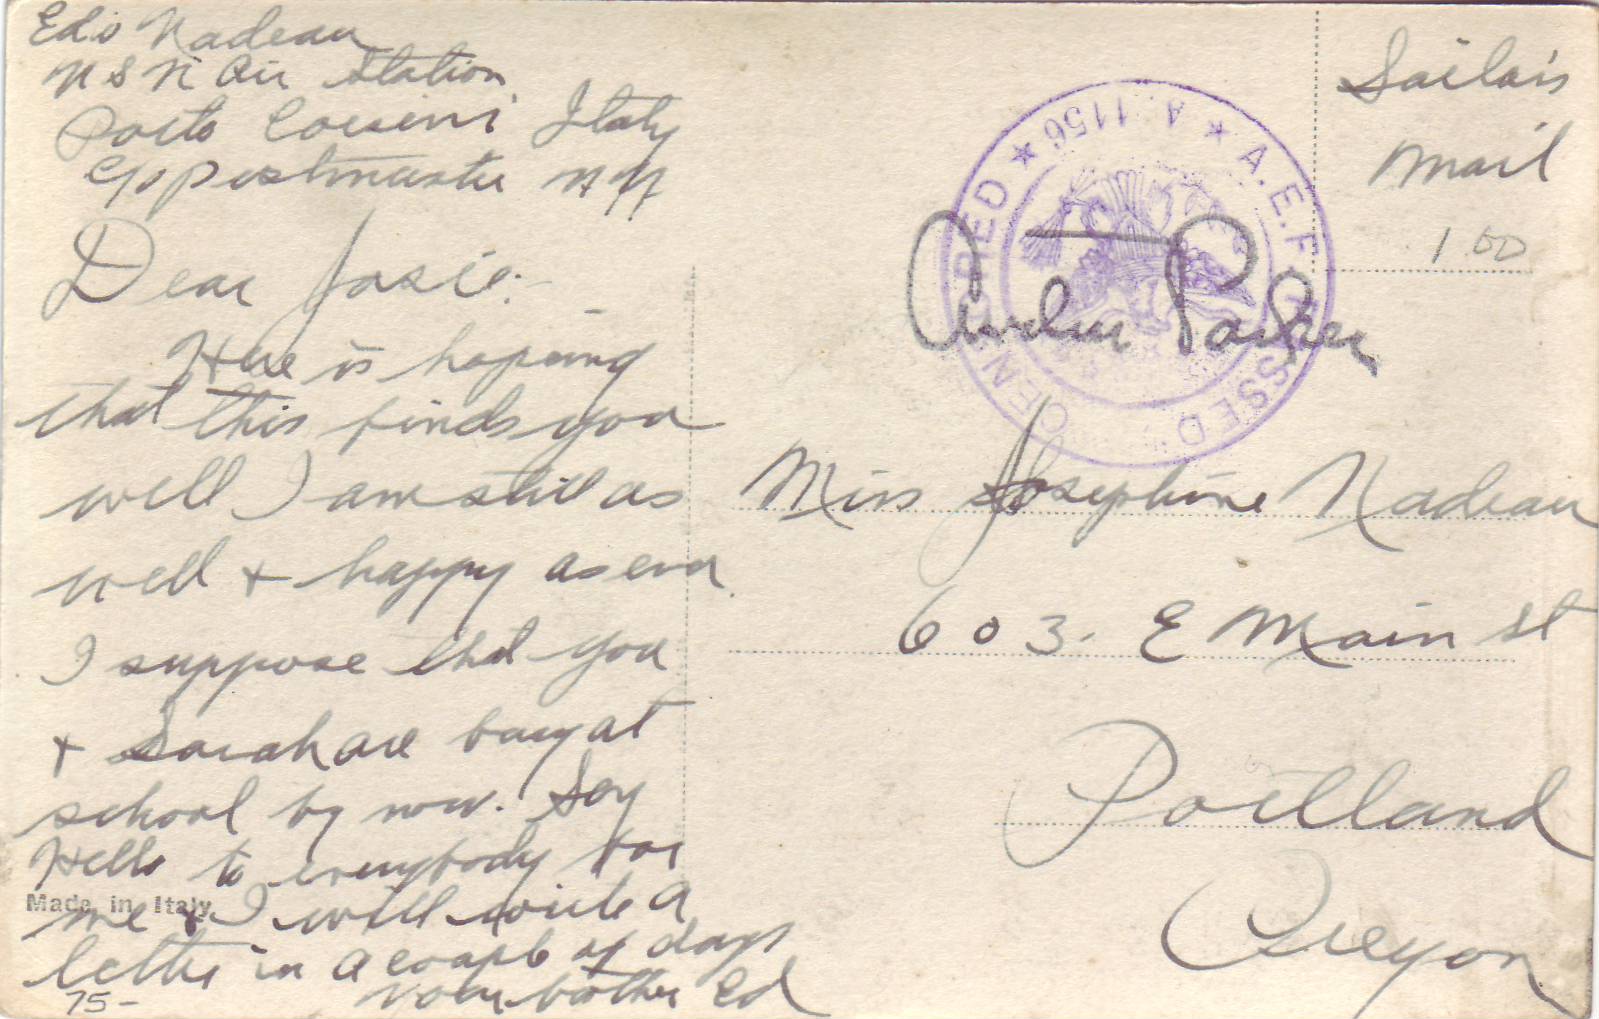 Ed. Nadeau
U S N Air Station
Porto Corsini Italy
c/o Postmaster N Y
Dear Josie:-
Here is hopeing
that this finds you
well I am still as
well & happy as ever.
I suppose that you
& Sarah are busy at
school by now. Say
Hello to everybody for
me & I will write a
letter in a couple of days
Your brother Ed
Made in Italy
75-
Sailors
Mail
1 00
A.E.F. PASSED CENSORED ★ A. 1156 ★
Parker
Miss Josephine Nadeau
603. E Main St
Portland
Oregon